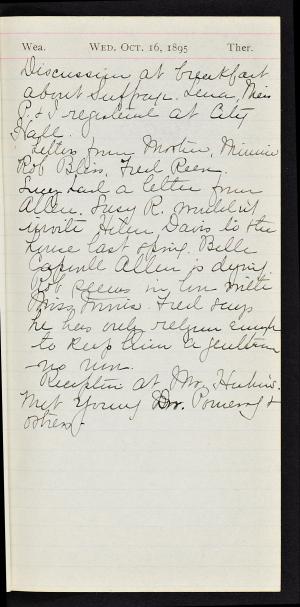 Wea. WED. OCT. 16, 1895 Ther.
Discussion at breakfast
about Suffrage. Lena, Miss
P. & I registered at City
Hall.
Letters from Morton, Minnie
Rob Bliss, Fred Keen.
Lucy had a letter from
Allen. Susy R. wouldn't
invite Helen Davis to the
house last spring. Belle
Allen is dying.
Rob seems in love with
Miss Fred says
he has only religion enough
to keep him a gentleman
- no more.
Reception at Mrs.
Met young Dr. Pomeroy &
others.